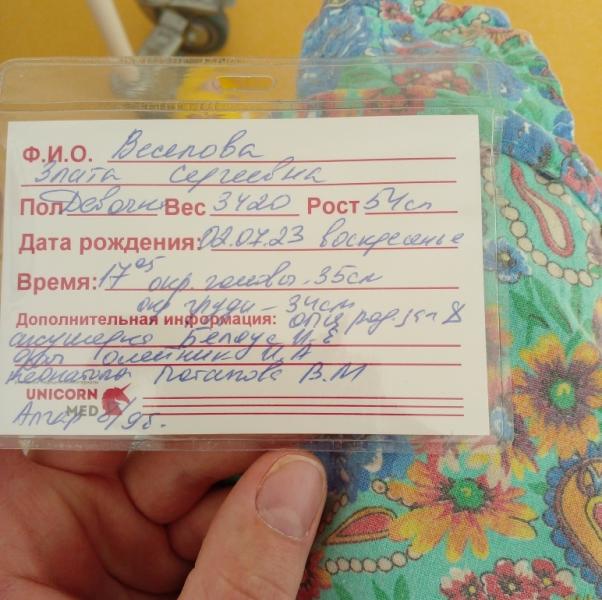 Ф.И.О. Веселова
Злата Сергеевна
Пол Девочка Вес 3420 Рост 54см
Дата рождения: 02.07.23 воскресенье
Время: 17 05 окр. головы - 35см
окр груди - 34см
Дополнительная информация:
акушерка Белоус И.
Олейник И.А
неонатолог Потапова В.М
UNICORN
MED
Апгар 8/9б.